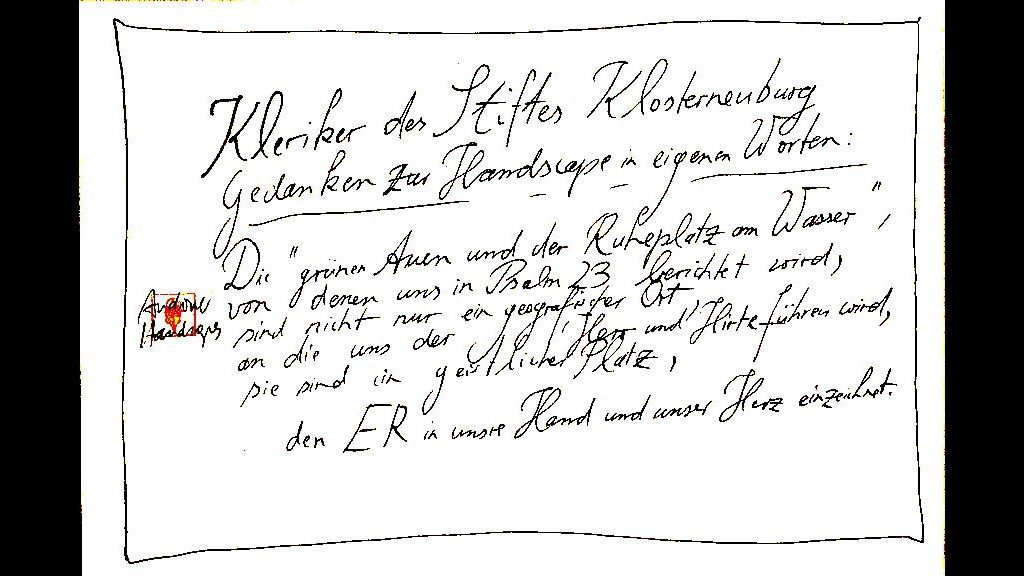 Kleriker des Stiftes Klosterneuburg
Gedanken zur Handscape in eigenen Worten:
Die "grünen Auen und der Ruheplatz am Wasser",
von denen uns in Psalm 23 berichtet wird,
sind nicht nur ein geografischer Ort,
an die uns der 'Herr und' Hirte führen wird,
sie sind ein geistlicher Platz,
den ER in unsre Hand und unser Herz einzeichnet.